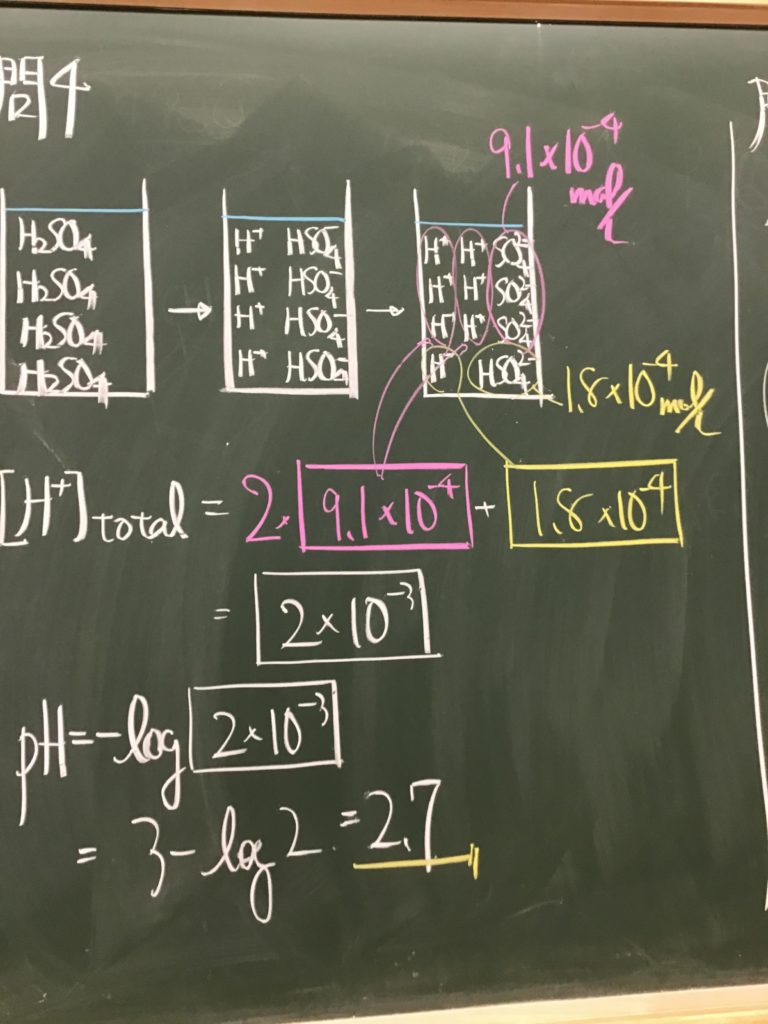 問4
9.1×10⁻⁴
mol/L
H₂SO₄
H₂SO₄
H₂SO₄
H₂SO₄
→
H⁺ HSO₄⁻
H⁺ HSO₄⁻
H⁺ HSO₄⁻
H⁺ HSO₄⁻
→
H⁺ H⁺ SO₄²⁻
H⁺ H⁺ SO₄²⁻
H⁺ H⁺ SO₄²⁻
H⁺ HSO₄⁻
1.8×10⁻⁴ mol/L
[H⁺]total = 2×9.1×10⁻⁴ + 1.8×10⁻⁴
= 2×10⁻³
pH=-log 2×10⁻³
= 3-log2 = 2.7